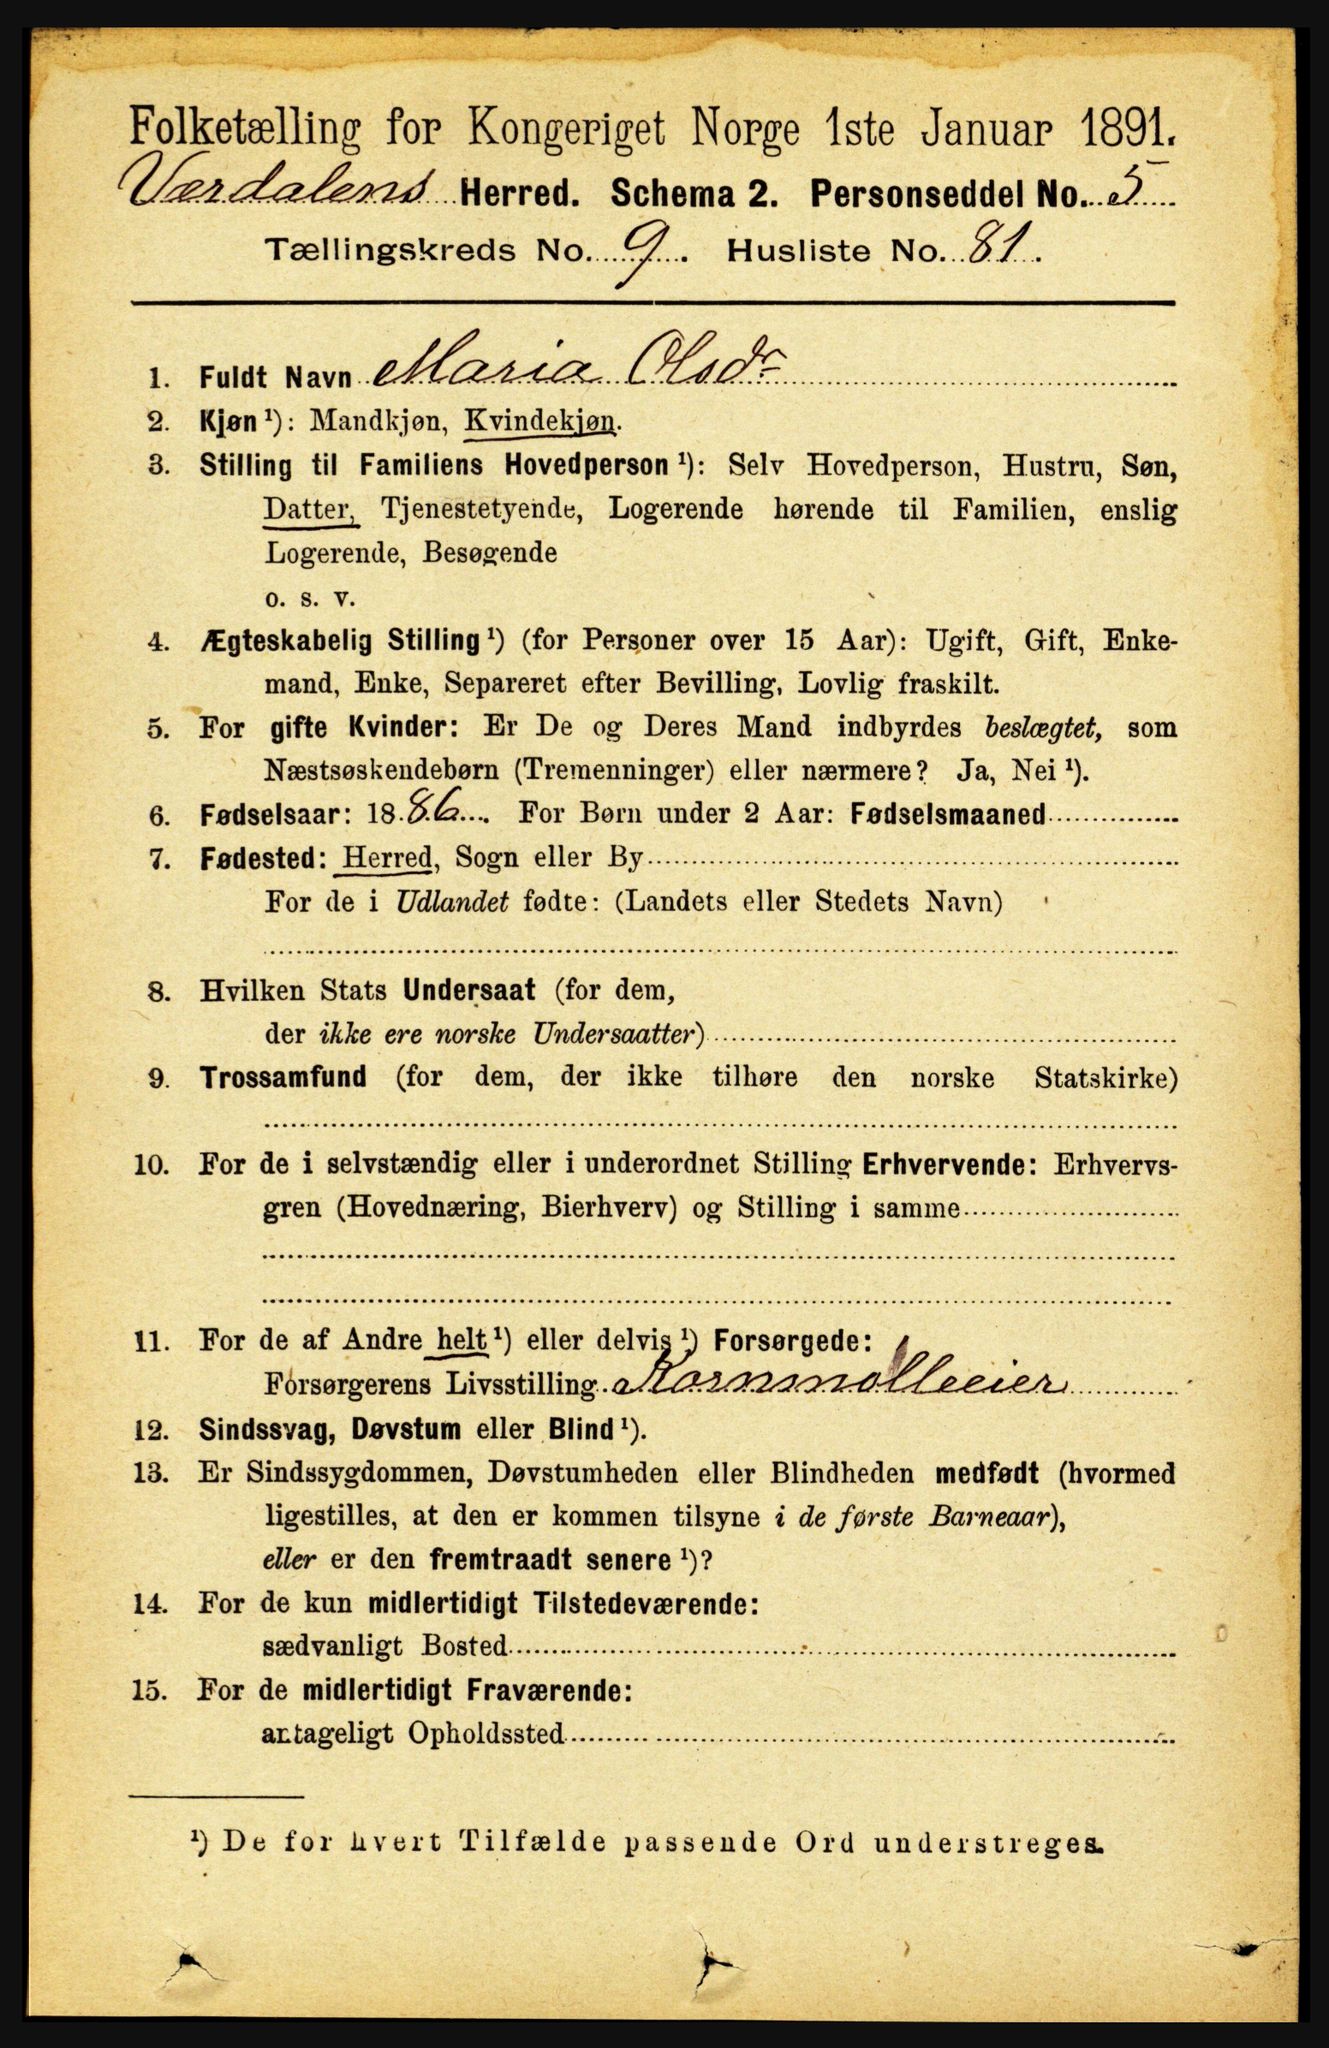 Folketælling for Kongeriget Norge 1ste Januar 1891.
Værdalens Herred. Schema 2. Personseddel No. 5
Tællingskreds No. 9. Husliste No. 81.
1. Fuldt Navn Maria Olsdr
2. Kjøn ¹): Mandkjøn, Kvindekjøn.
3. Stilling til Familiens Hovedperson ¹): Selv Hovedperson, Hustru, Søn,
Datter, Tjenestetyende, Logerende hørende til Familien, enslig
Logerende, Besøgende
o. s. v.
4. Ægteskabelig Stilling ¹) (for Personer over 15 Aar): Ugift, Gift, Enke-
mand, Enke, Separeret efter Bevilling, Lovlig fraskilt.
5. For gifte Kvinder: Er De og Deres Mand indbyrdes beslægtet, som
Næstsøskendebørn (Tremenninger) eller nærmere? Ja, Nei ¹).
6. Fødselsaar: 1886. For Børn under 2 Aar: Fødselsmaaned
7. Fødested: Herred, Sogn eller By
For de i Udlandet fødte: (Landets eller Stedets Navn)
8. Hvilken Stats Undersaat (for dem,
der ikke ere norske Undersaatter)
9. Trossamfund (for dem, der ikke tilhøre den norske Statskirke)
10. For de i selvstændig eller i underordnet Stilling Erhvervende: Erhvervs-
gren (Hovednæring, Bierhverv) og Stilling i samme
11. For de af Andre helt ¹) eller delvis ¹) Forsørgede:
Forsørgerens Livsstilling Kornmølleeier
12. Sindssvag, Døvstum eller Blind ¹).
13. Er Sindssygdommen, Døvstumheden eller Blindheden medfødt (hvormed
ligestilles, at den er kommen tilsyne i de første Barneaar),
eller er den fremtraadt senere ¹)?
14. For de kun midlertidigt Tilstedeværende:
sædvanligt Bosted
15. For de midlertidigt Fraværende:
antageligt Opholdssted
¹) De for hvert Tilfælde passende Ord understreges.